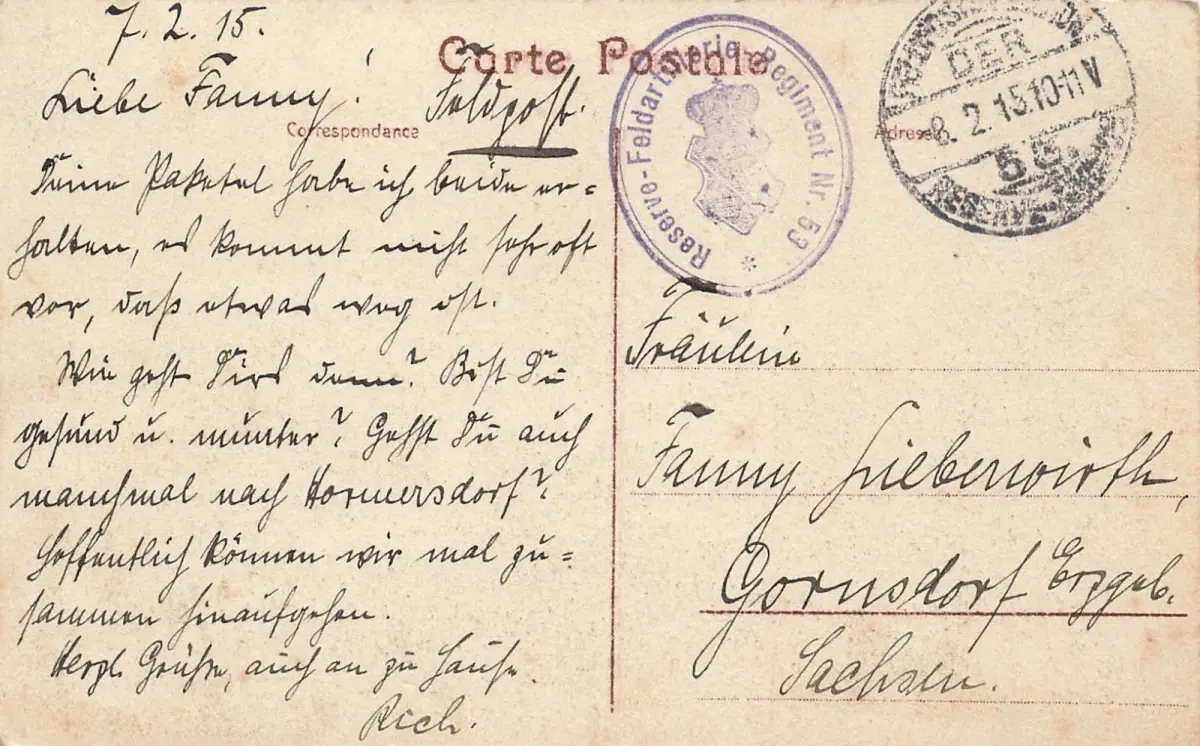 7.2.15.
Carte Postale
Liebe Fanny!
Feldpost.
Correspondance
Adresse
Deine Paketel habe ich beide er=
halten, es kommt nicht sehr oft
vor, daß etwas weg ist.
Wie geht Dirs denn? Bist Du
gesund u. munter? Gehst Du auch
manchmal nach Hormersdorf?
Hoffentlich können wir mal zu=
sammen hinaufgehen.
Herzl. Grüße, auch an zu Hause.
Rich.
Reserve-Feldartillerie-Regiment Nr. 53
*
DER
8.2.15.10-11V
RESERVE
Fräulein
Fanny Lieberwirth,
Gornsdorf Erzgeb.
Sachsen.